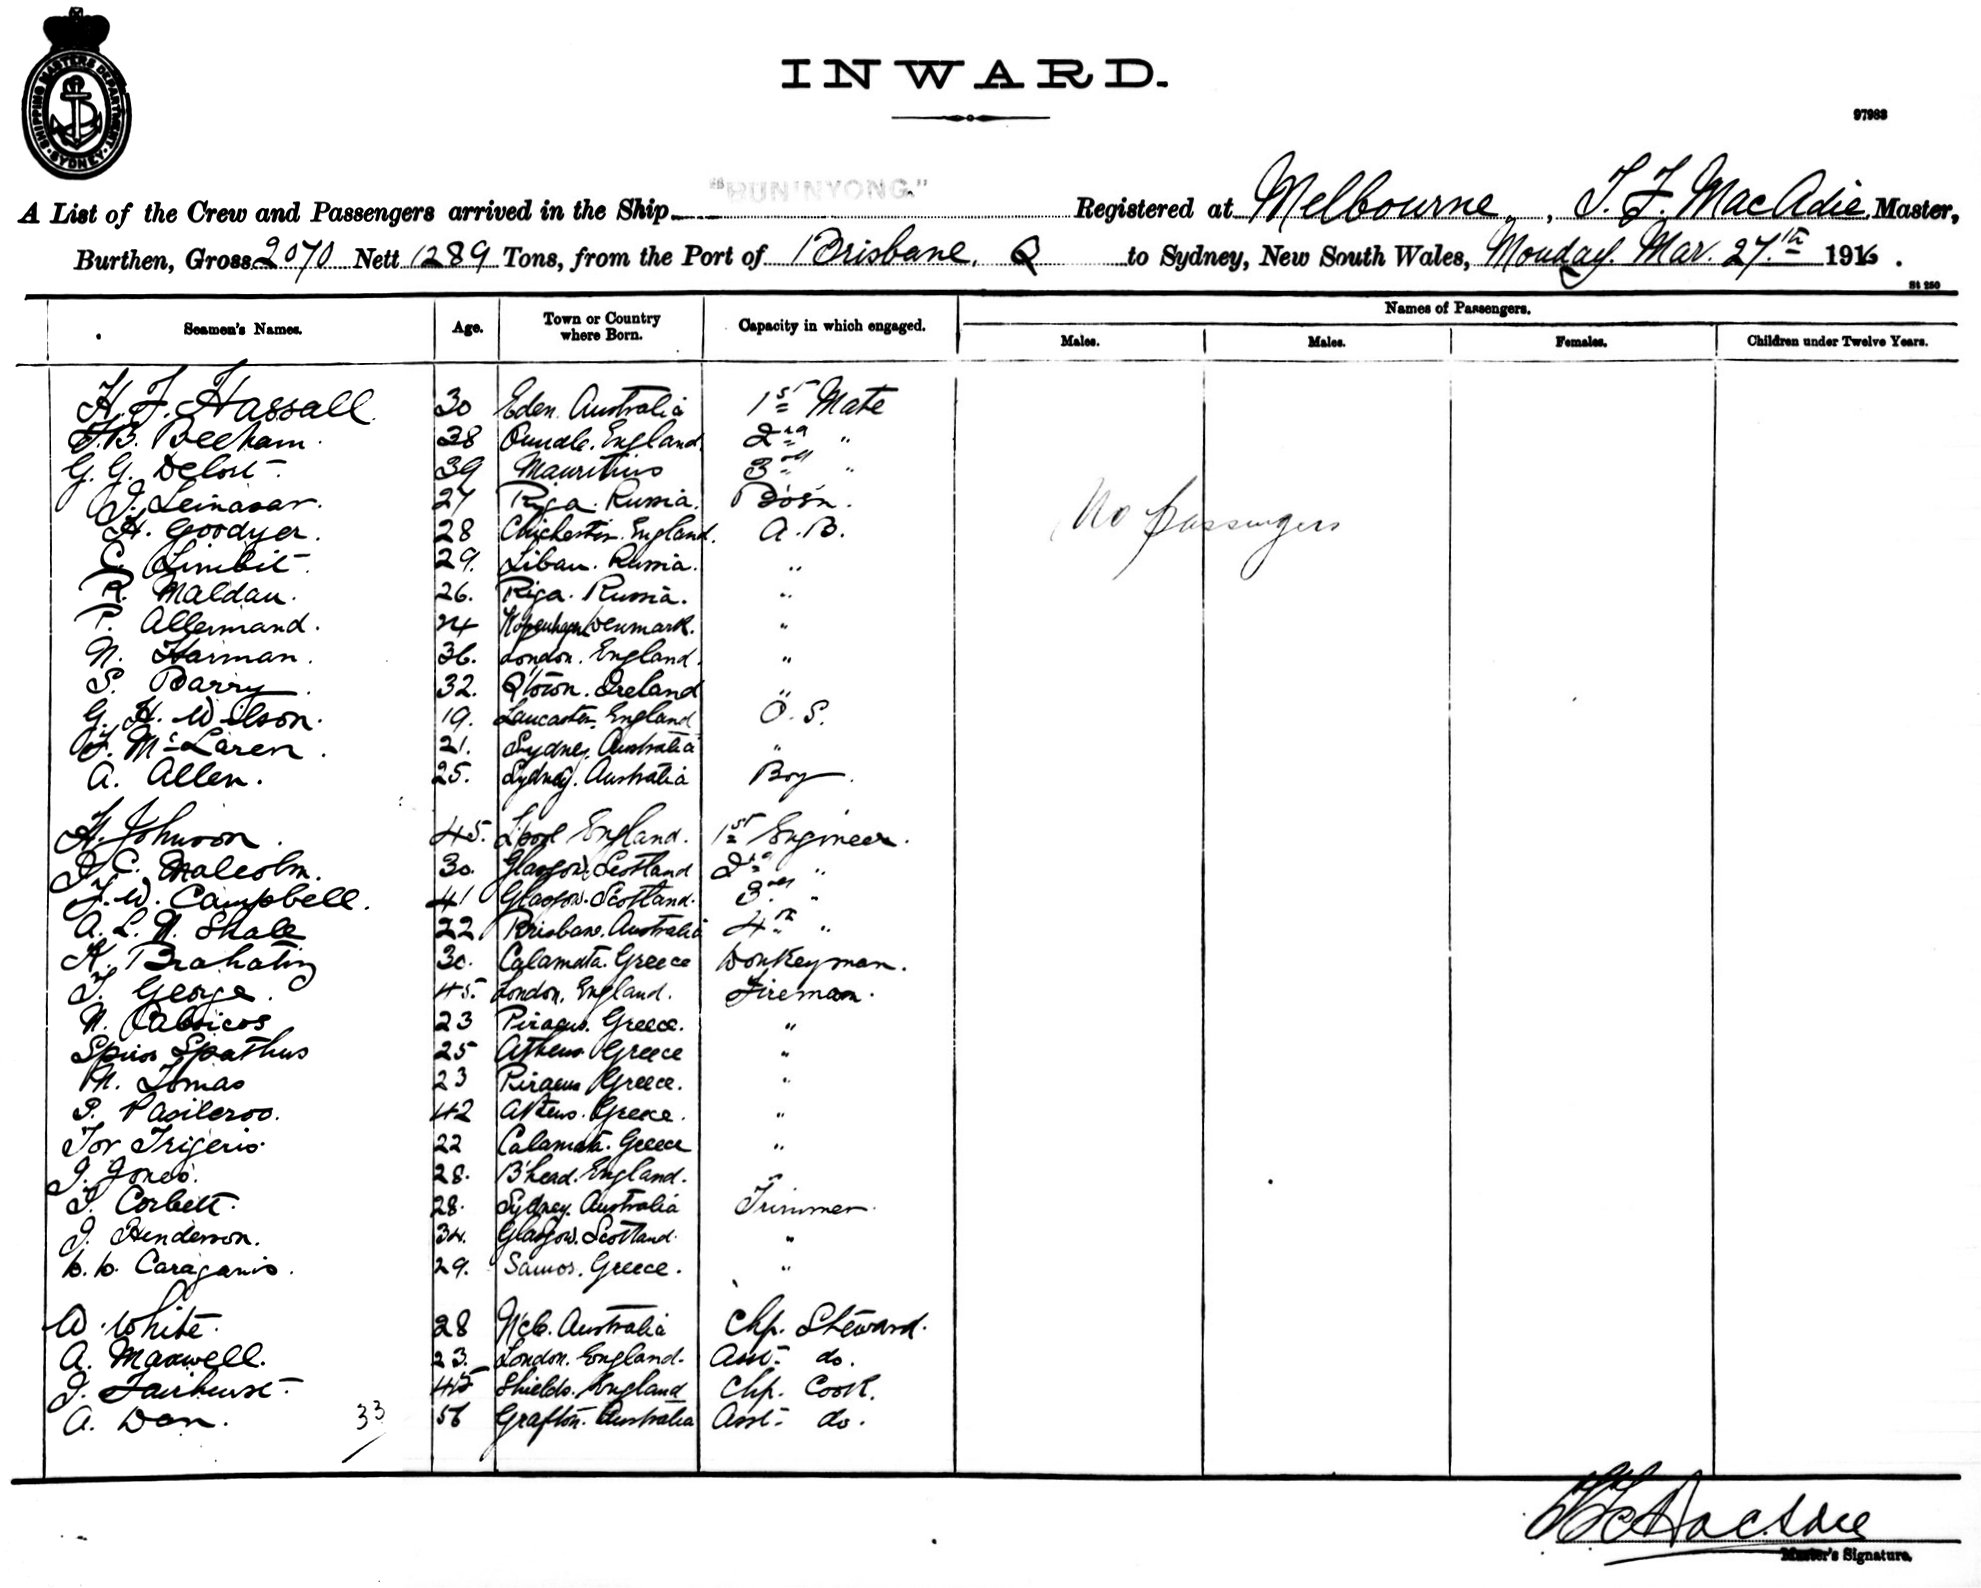 SHIPPING MASTERS DEPARTMENT SYDNEY
INWARD.
97983
A List of the Crew and Passengers arrived in the Ship "BUNINYONG" Registered at Melbourne, T. F. MacAdie Master,
Burthen, Gross 2070 Nett 1289 Tons, from the Port of Brisbane. Q to Sydney, New South Wales, Monday. Mar. 27th 1916.
Seamen's Names. Age. Town or Country where Born. Capacity in which engaged. Names of Passengers.
Males. Males. Females. Children under Twelve Years.
H. F. Hassall. 30 Eden. Australia 1st Mate
Beeham. 38 England 2nd "
G. G. 39 Mauritius 3rd "
J. Leinasar. 27 Riga. Russia. Bosn.
No passengers
H. Goodyer. 28 Chichester. England. A.B.
C. Limbit. 29. Libau. Russia. "
R. Maldau. 26. Riga. Russia. "
P. Allermand. 24 Kopenhagen Denmark. "
N. Harman. 36. London. England. "
S. Barry. 32. Q'town. Ireland "
G. H. Wilson. 19. Lancaster. England O.S.
McLaren. 21. Sydney. Australia "
A. Allen. 25. Sydney. Australia Boy.
H. Johnson. 45. L'pool England. 1st Engineer.
J. C. Malcolm. 30. Glasgow. Scotland 2nd "
J. W. Campbell. 41 Glasgow. Scotland. 3rd "
A. L. N. Shale 22 Brisbane. Australia 4th "
30. Calamata. Greece Donkeyman.
T. George. 45. London. England. Fireman.
N. 23 Piraeus. Greece. "
Spiros Spathus 25 Athens Greece "
M. Tomas 23 Piraeus Greece. "
42 Athens. Greece. "
22 Calamata. Greece "
J. Jones. 28. B'head. England. "
T. Corbett. 28. Sydney. Australia Trimmer.
J. Henderson. 34. Glasgow. Scotland. "
Caraganis. 29. Samos. Greece. "
W. White. 28 N'cle. Australia Chf. Steward.
A. Maxwell. 23. London. England. Asst. do.
J. Fairhurst. 45 Shields. England Chf. Cook.
A. Dan. 33 56 Grafton. Australia Asst. do.
Master's Signature.